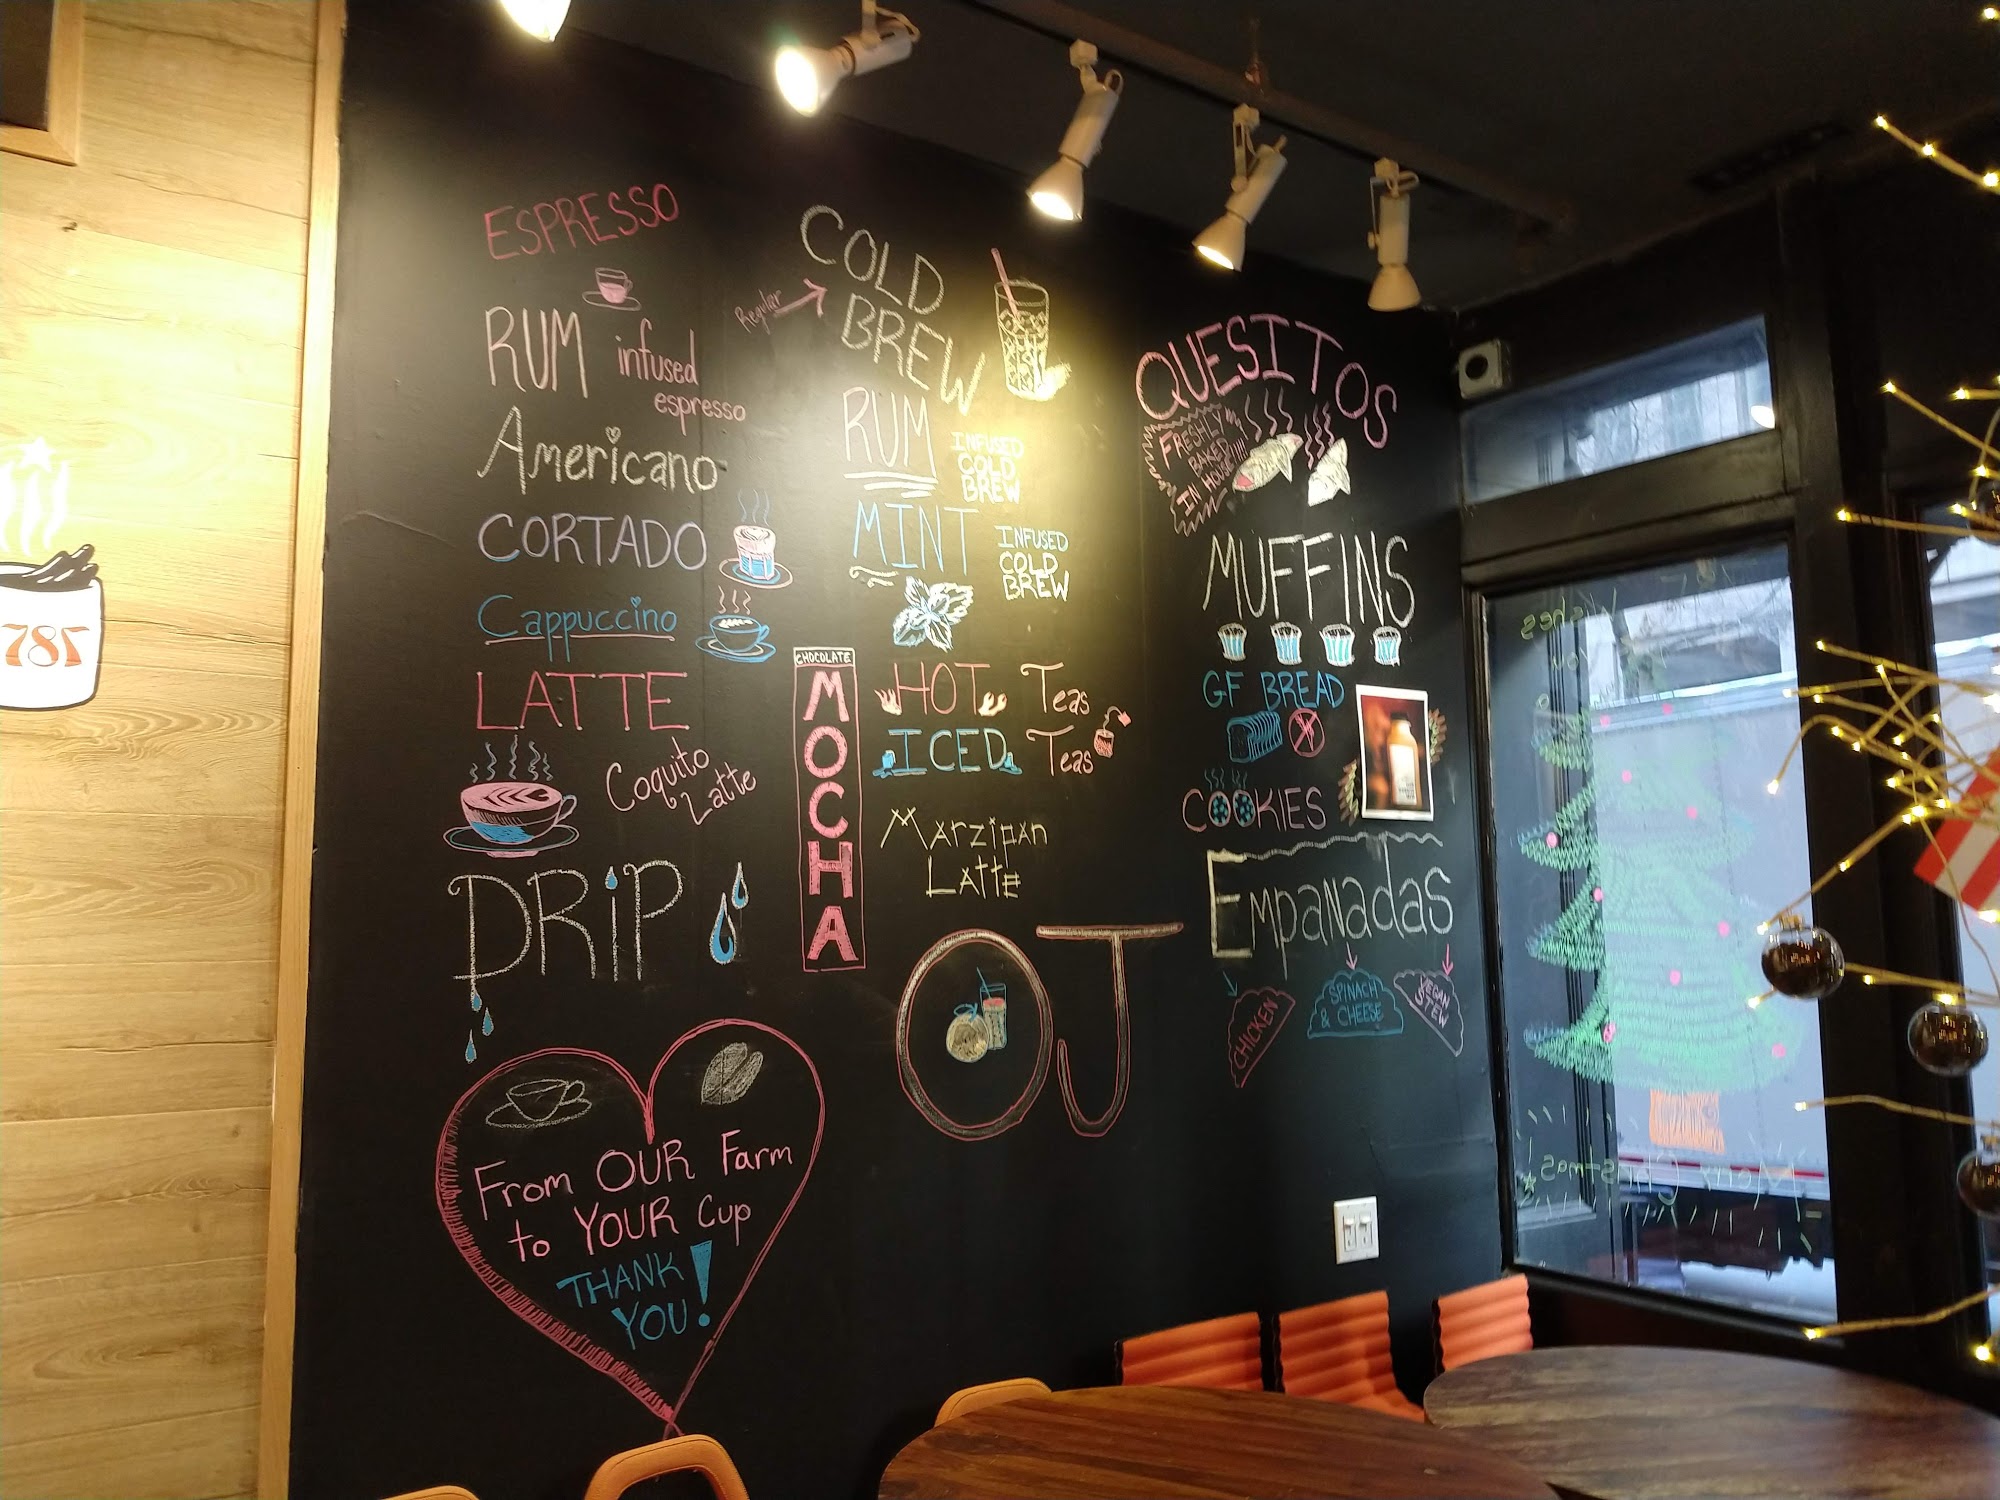 ESPRESSO
RUM infused
espresso
Americano
CORTADO
Cappuccino
LATTE
Coquito
Latte
DRiP
From OUR Farm
to YOUR Cup
THANK
YOU!
Regular
COLD
BREW
RUM
INFUSED
COLD
BREW
MINT
INFUSED
COLD
BREW
CHOCOLATE
MOCHA
HOT Teas
ICED Teas
Marzipan
Latte
OJ
QUESITOS
FRESHLY
BAKED
IN HOUSE!!!!
MUFFINS
GF BREAD
COOKIES
EMPANADAS
CHICKEN
SPINACH
& CHEESE
VEGAN
STEW
787
Wishes
You
Merry Christmas